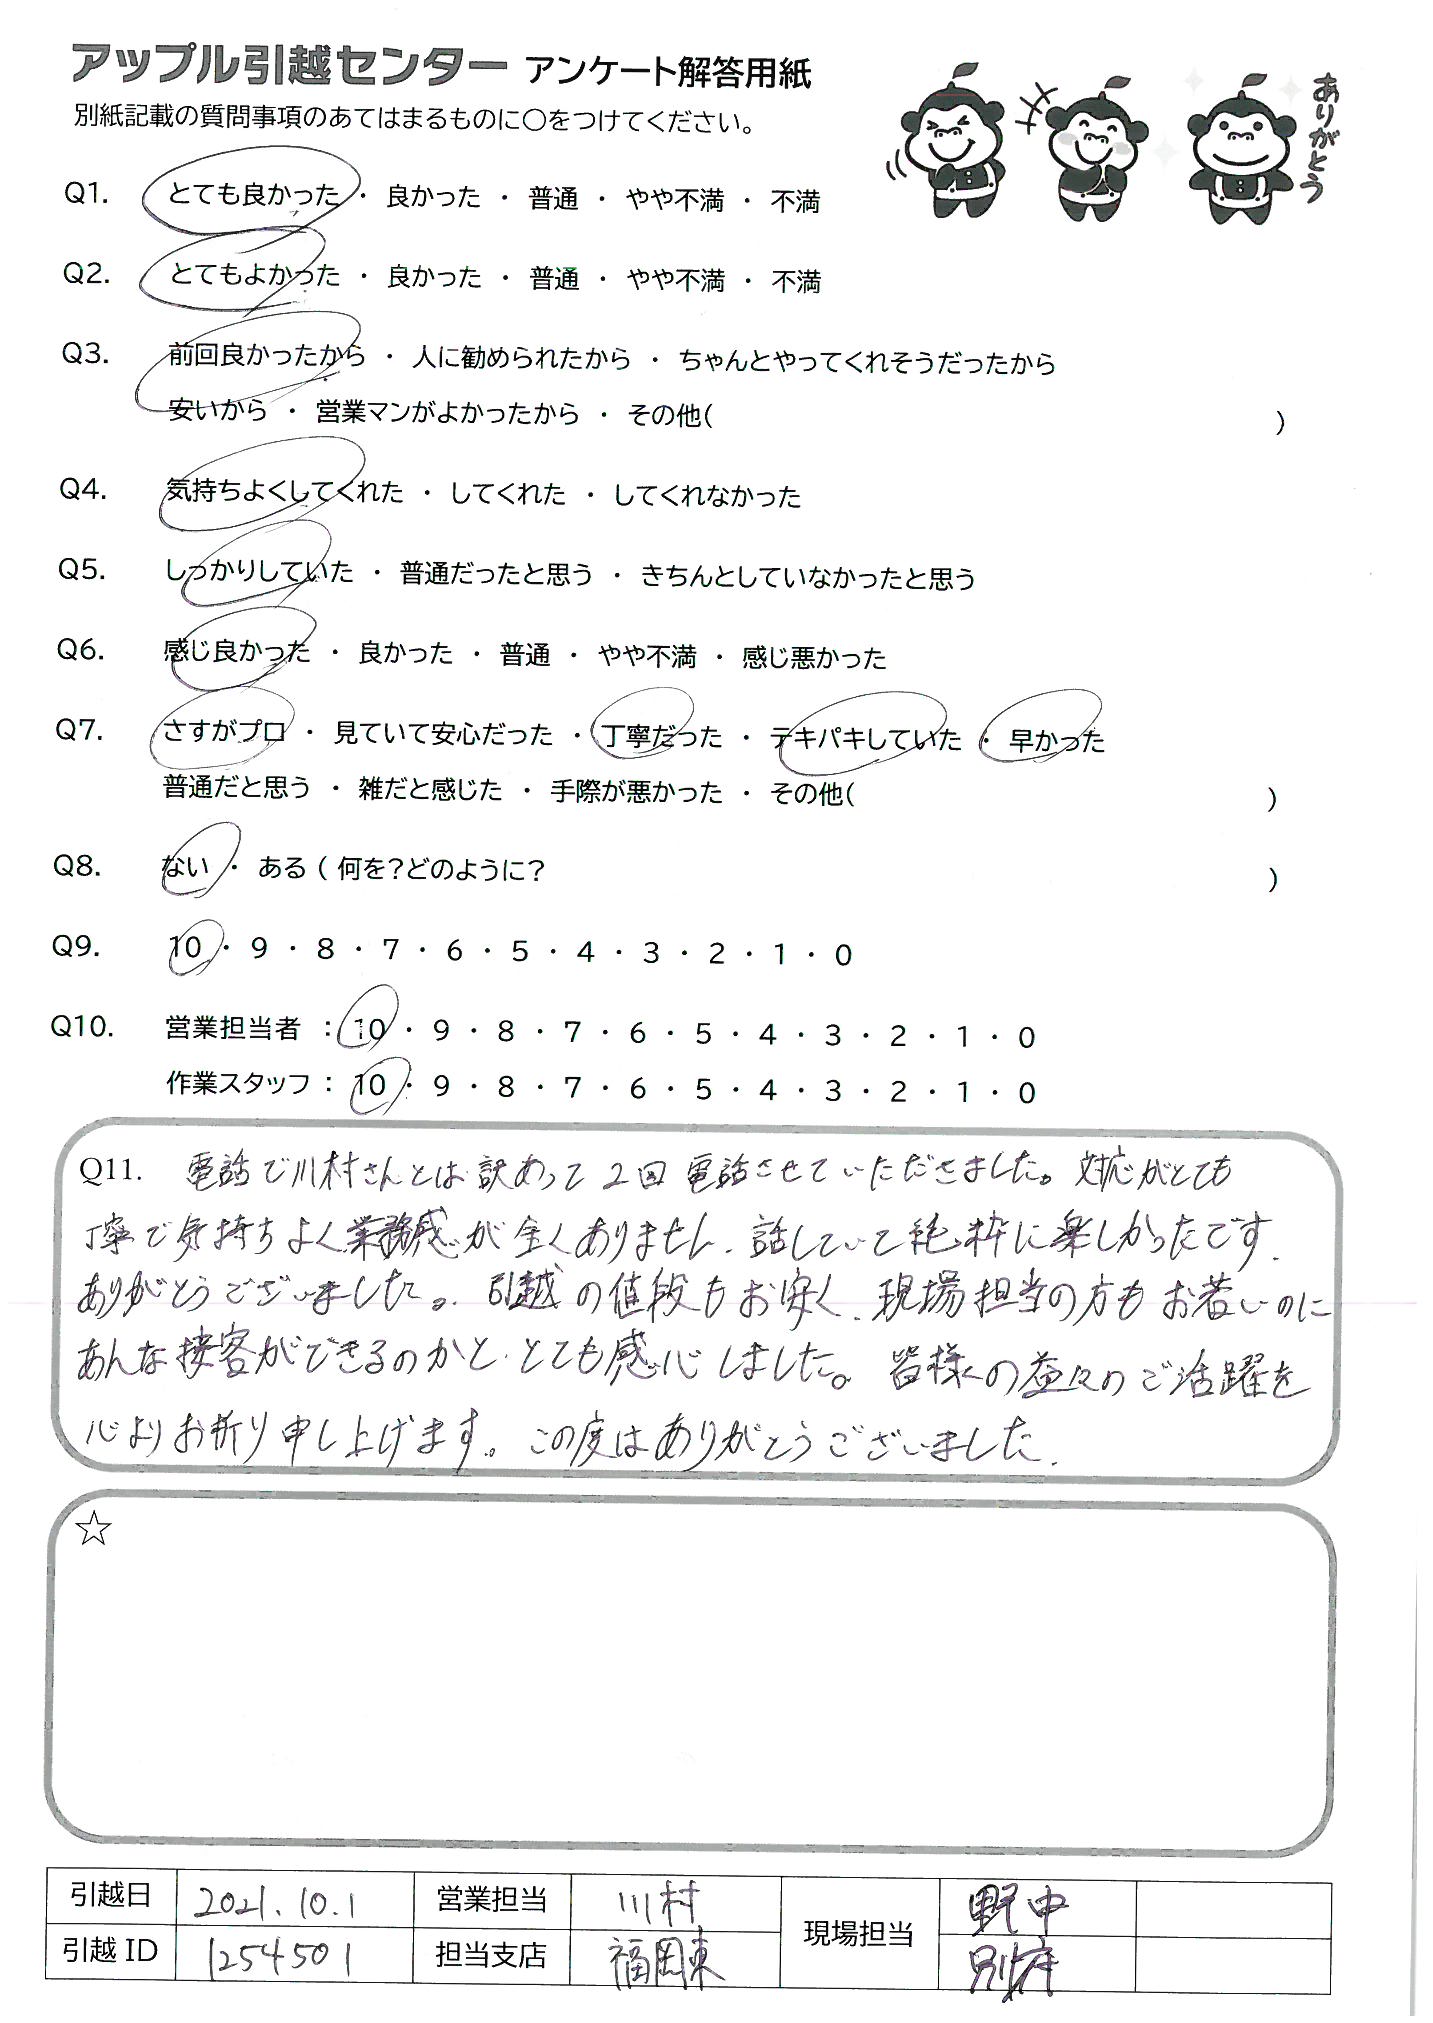 アップル引越センター アンケート解答用紙
別紙記載の質問事項のあてはまるものに○をつけてください。
ありがとう
Q1. とても良かった ・ 良かった ・ 普通 ・ やや不満 ・ 不満
Q2. とてもよかった ・ 良かった ・ 普通 ・ やや不満 ・ 不満
Q3. 前回良かったから ・ 人に勧められたから ・ ちゃんとやってくれそうだったから
安いから ・ 営業マンがよかったから ・ その他( )
Q4. 気持ちよくしてくれた ・ してくれた ・ してくれなかった
Q5. しっかりしていた ・ 普通だったと思う ・ きちんとしていなかったと思う
Q6. 感じ良かった ・ 良かった ・ 普通 ・ やや不満 ・ 感じ悪かった
Q7. さすがプロ ・ 見ていて安心だった ・ 丁寧だった ・ テキパキしていた ・ 早かった
普通だと思う ・ 雑だと感じた ・ 手際が悪かった ・ その他( )
Q8. ない ・ ある ( 何を?どのように? )
Q9. 10 ・ 9 ・ 8 ・ 7 ・ 6 ・ 5 ・ 4 ・ 3 ・ 2 ・ 1 ・ 0
Q10. 営業担当者 : 10 ・ 9 ・ 8 ・ 7 ・ 6 ・ 5 ・ 4 ・ 3 ・ 2 ・ 1 ・ 0
作業スタッフ : 10 ・ 9 ・ 8 ・ 7 ・ 6 ・ 5 ・ 4 ・ 3 ・ 2 ・ 1 ・ 0
Q11. 電話で川村さんとは訳あって2回電話させていただきました。対応がとても
丁寧で気持ちよく業務感が全くありません、話していて純粋に楽しかったです。
ありがとうございました。引越の値段もお安く、現場担当の方もお若いのに
あんな接客ができるのかと、とても感心しました。皆様の益々のご活躍を
心よりお祈り申し上げます。この度はありがとうございました。
☆
引越日 2021.10.1 営業担当 川村 現場担当 野中
引越 ID 1254501 担当支店 福岡東 別府